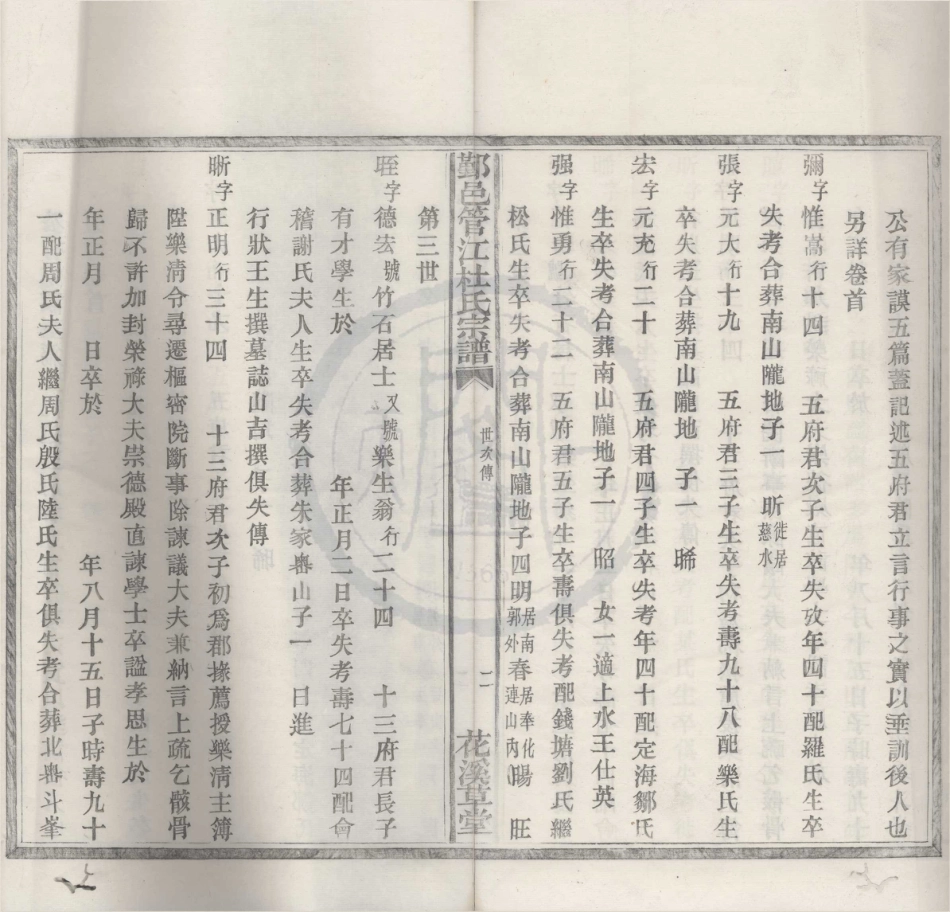 公有家謨五篇蓋記述五府君立言行事之實以垂訓後人也
另詳卷首
彌字惟嵩行十四　五府君次子生卒失攷年四十配羅氏生卒
失考合葬南山隴地子一　昕徙居慈水
張字元大行十九　五府君三子生卒失考壽九十八配樂氏生
卒失考合葬南山隴地　子一　晞
宏字元充行二十　五府君四子生卒失考年四十配定海鄒氏
生卒失考合葬南山隴地子一　昭　女一適上水王仕英
强字惟勇行二十二　五府君五子生卒壽俱失考配錢塘劉氏繼
松氏生卒失考合葬南山隴地子四明居南郭外春居奉化連山內暘　旺
鄞邑管江杜氏宗譜
世次傳
二
花溪草堂
第三世
晊字德宏號竹石居士又號樂生翁行二十四　十三府君長子
有才學生於　年正月二日卒失考壽七十四配會
稽謝氏夫人生卒失考合葬朱家嶴山子一　曰進
行狀王生撰墓誌山吉撰俱失傳
晰字正明行三十四　十三府君次子初爲郡掾薦授樂清主簿
陞樂清令尋遷樞密院斷事除諫議大夫兼納言上疏乞骸骨
歸不許加封榮祿大夫崇德殿直諫學士卒諡孝思生於
年正月　日卒於　年八月十五日子時壽九十
一配周氏夫人繼周氏殷氏陸氏生卒俱失考合葬北嶴斗峯